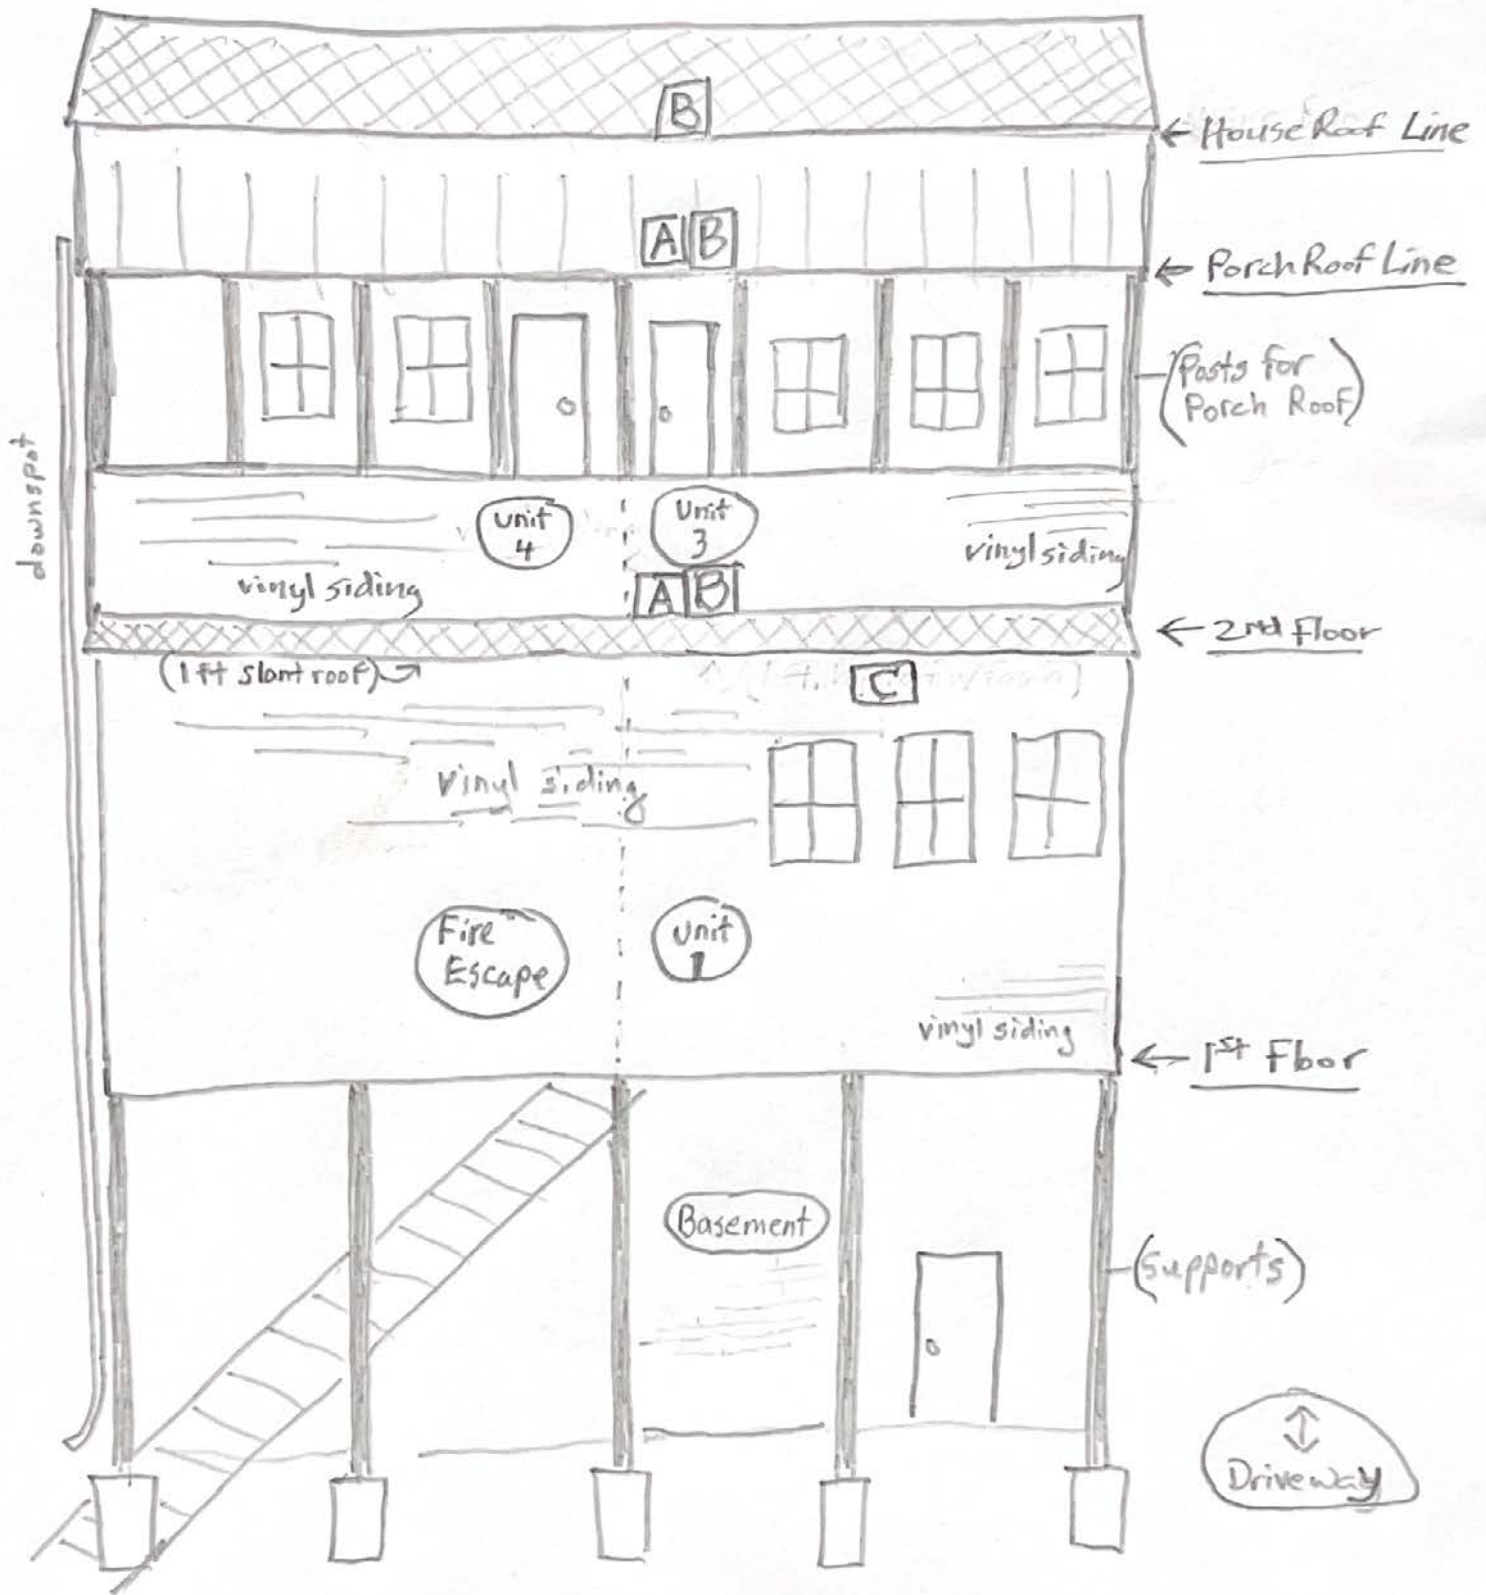 B
← House Roof Line
A B
← Porch Roof Line
(Posts for
Porch Roof)
downspot
Unit
4
Unit
3
vinyl siding
vinyl siding
A B
← 2nd Floor
(1 ft slant roof)
C
vinyl siding
Fire
Escape
Unit
1
vinyl siding
← 1st Floor
Basement
(Supports)
Driveway